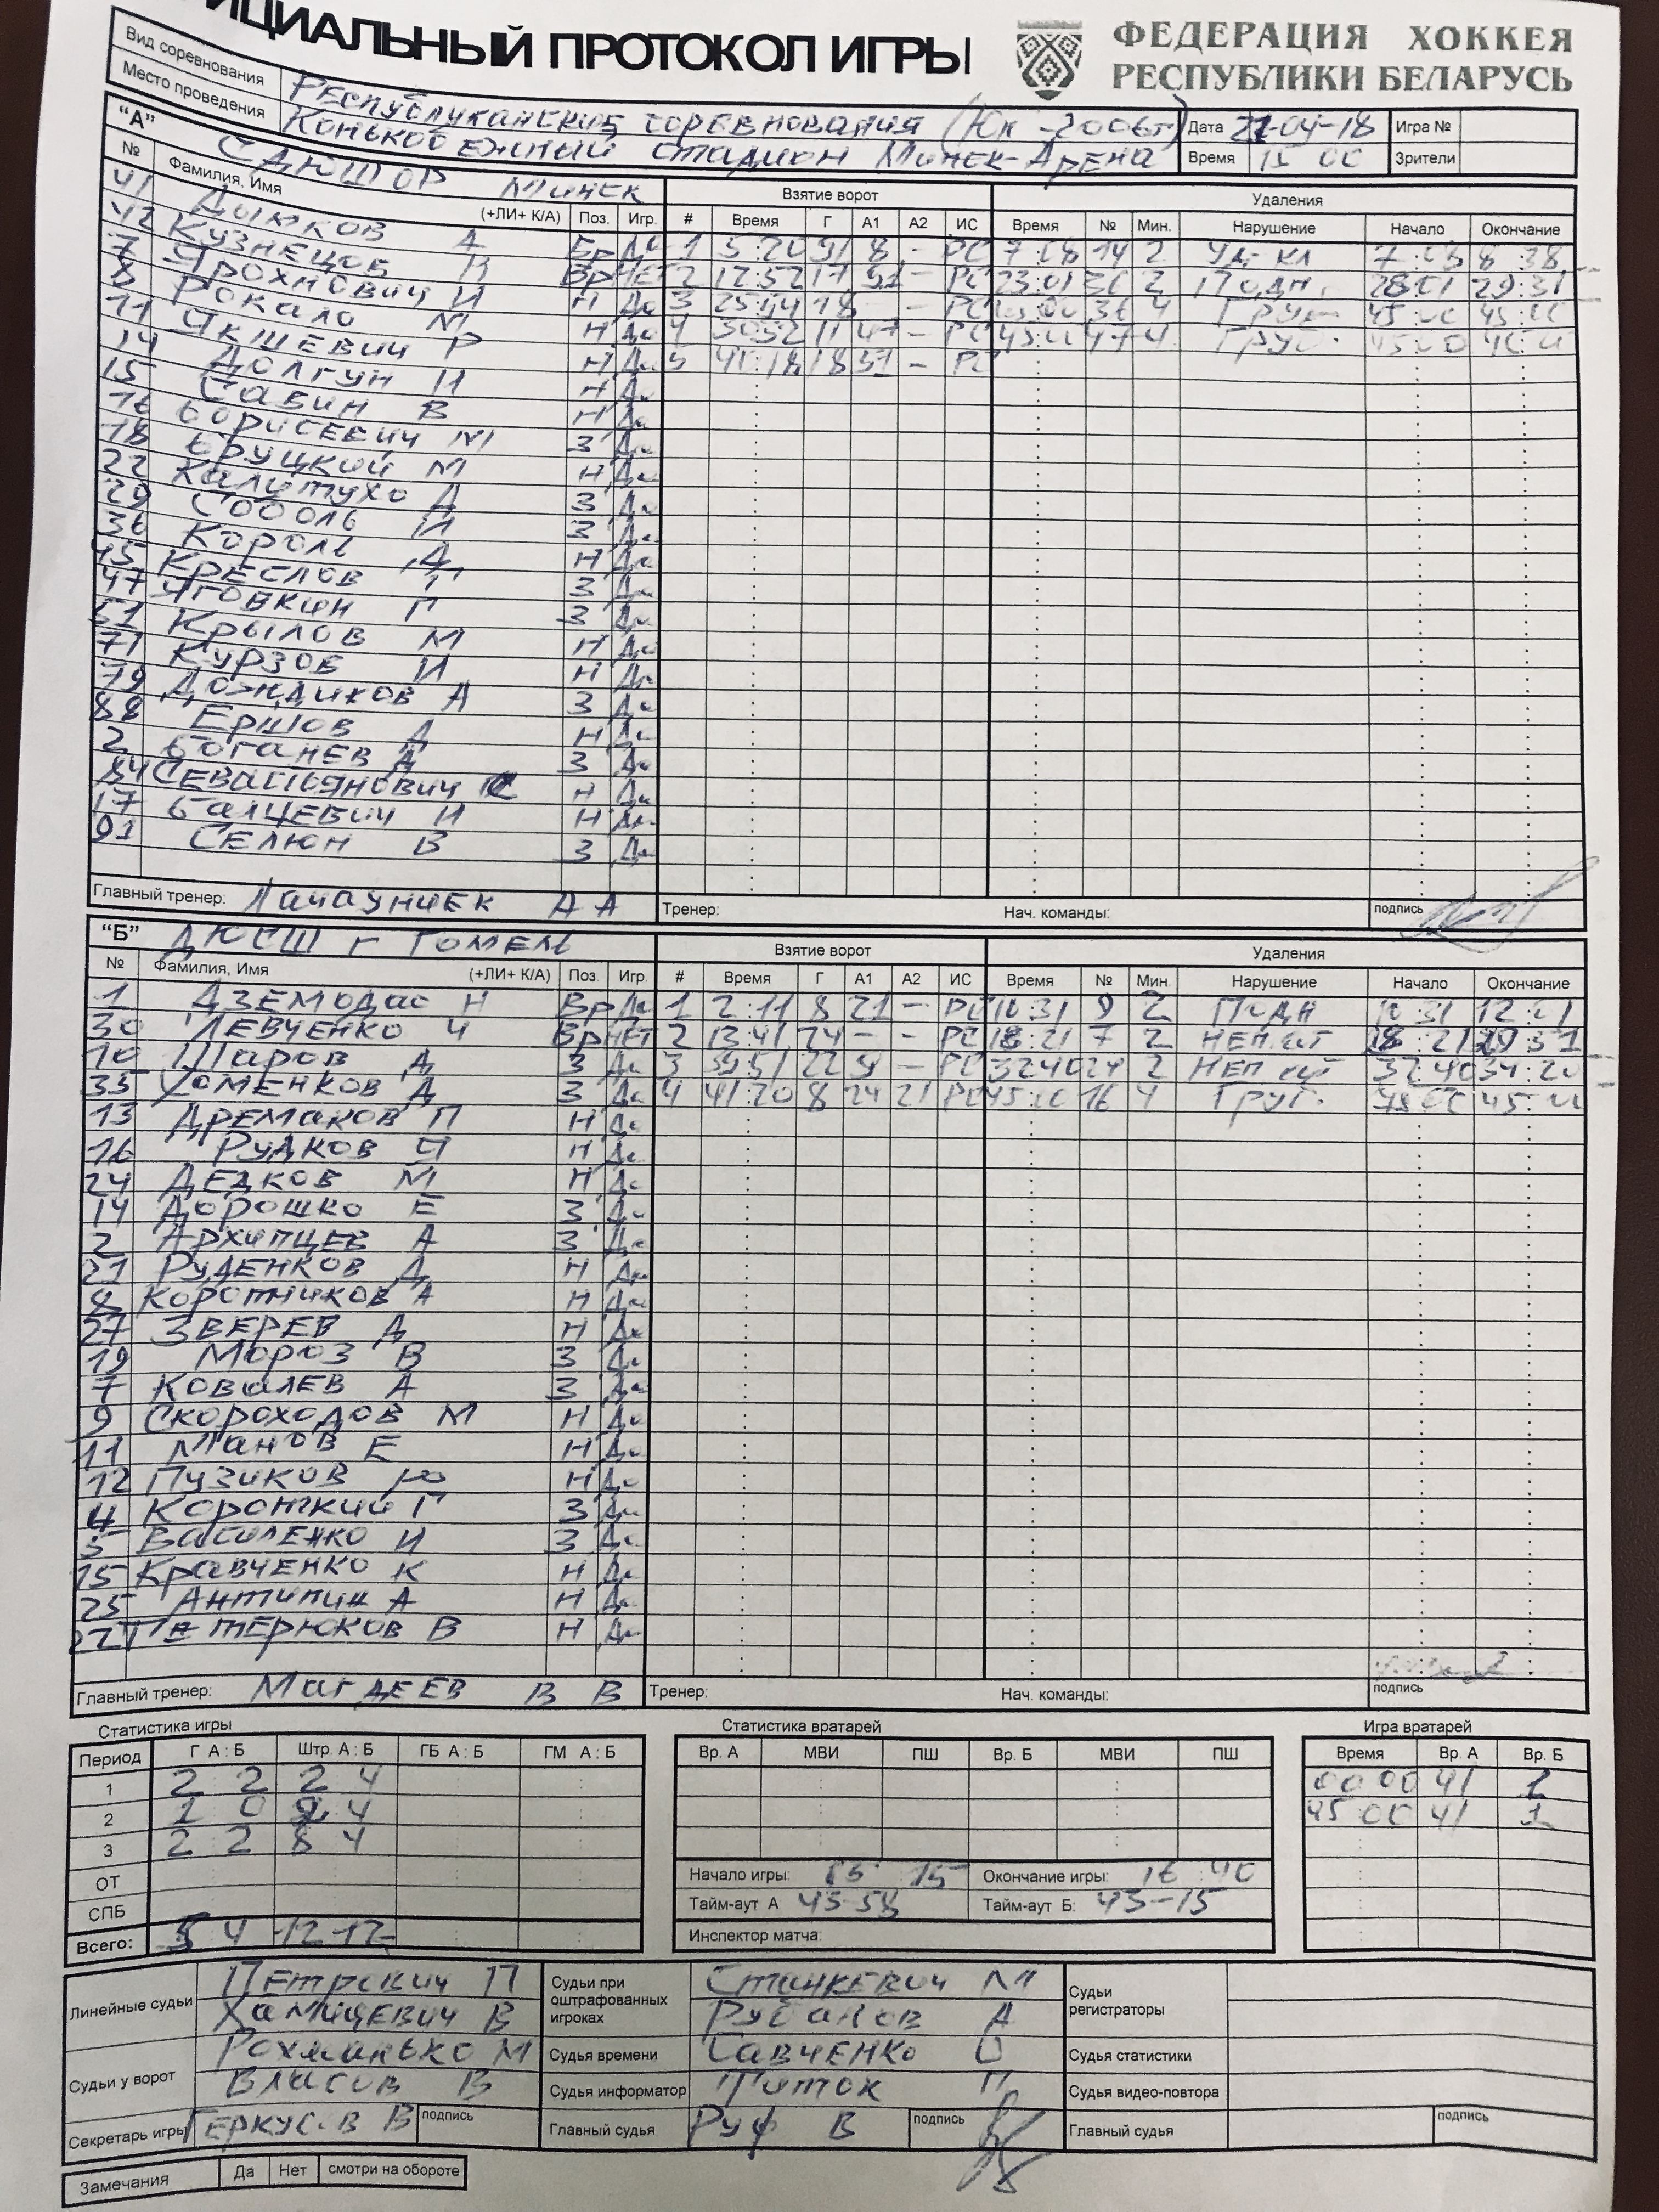 ИЦИАЛЬНЫЙ ПРОТОКОЛ ИГРЫ
ФЕДЕРАЦИЯ ХОККЕЯ
РЕСПУБЛИКИ БЕЛАРУСЬ
Вид соревнования Республиканские соревнования (Юн -2006г) Дата 21-04-18 Игра №
Место проведения Конькобежный стадион Минск-Арена Время 15 00 Зрители
"А" СДЮШОР Минск Взятие ворот Удаления
№ Фамилия, Имя (+ЛИ+ К/А) Поз. Игр. # Время Г А1 А2 ИС Время № Мин. Нарушение Начало Окончание
41 Дырков А Вр Да 1 5:20 91 8 - РС 7:08 14 2 Уд. кл 7:08 8:38
42 Кузнецов В Вр НЕТ 2 12:52 17 91 - РС 23:01 36 2 Подн. 28:01 29:31
7 Ярохнович И Н Да 3 25:44 18 - - РС 36 4 Груб
8 Рокало М Н Да 4 30:52 11 47 - РС 47 4 Груб.
11 Якшевич Р Н Да 5 41:18 18 51 - РС
14 Долгун И Н Да
15 Савин В Н Да
16 Борисевич М З Да
18 Бруцкий М Н Да
22 Калитухо А З Да
29 Соболь И З Да
36 Король Д Н Да
45 Креслов Т З Да
47 Яговкин Г З Да
51 Крылов М Н Да
71 Курзов И Н Да
79 Дождиков А З Да
88 Ершов Д Н Да
2 Боганев А З Да
84 Севастьянович Н Да
17 Балцевич И Н Да
91 Селюн В З Да
Главный тренер: А А Тренер: Нач. команды: подпись
"Б" ДЮСШ г Гомель Взятие ворот Удаления
№ Фамилия, Имя (+ЛИ+ К/А) Поз. Игр. # Время Г А1 А2 ИС Время № Мин. Нарушение Начало Окончание
1 Дземодас Н Вр Да 1 2:11 8 21 - РС 10:31 9 2 Подн 10:31 12:01
30 Левченко Ч Вр НЕТ 2 13:41 24 - - РС 18:21 7 2 18:21
10 Шаров Д З Да 3 39:51 22 9 - РС 32:40 24 2 32:40 34:20
33 Хоменков Д З Да 4 41:20 8 24 21 РС 45:00 16 4 Груб.
13 Дремаков П Н Да
16 Рудков Я Н Да
24 Дедков М Н Да
14 Дорошко Е З Да
2 Архипцев А З Да
21 Руденков Д Н Да
8 Коротчиков А Н Да
27 Зверев Д Н Да
19 Мороз В З Да
7 Ковалев А З Да
9 Скороходов М Н Да
11 Манов Е Н Да
12 Пузиков Ю Н Да
4 Короткий Г З Да
5 Василенко И З Да
15 Кравченко К Н Да
25 Антипин А Н Да
22 Патерюков В Н Да
Главный тренер: Магдеев В В Тренер: Нач. команды: подпись
Статистика игры Статистика вратарей Игра вратарей
Период Г А : Б Штр. А : Б ГБ А : Б ГМ А : Б Вр. А МВИ ПШ Вр. Б МВИ ПШ Время Вр. А Вр. Б
1 2 2 2 4 00 00 41 1
2 1 0 2 4 45 00 41 1
3 2 2 8 4
ОТ Начало игры: 15 Окончание игры: 16:40
СПБ Тайм-аут А 43-58 Тайм-аут Б: 43-15
Всего: 5 4 12 12 Инспектор матча:
Линейные судьи Петрович П Судьи при оштрафованных игроках Станкевич М Судьи регистраторы
Хамицевич В Рубанов А
Судьи у ворот Рохманько М Судья времени Савченко О Судья статистики
Власов В Судья информатор Титок П Судья видео-повтора
Секретарь игры Геркусов В подпись Главный судья Руф В подпись Главный судья подпись
Замечания Да Нет смотри на обороте